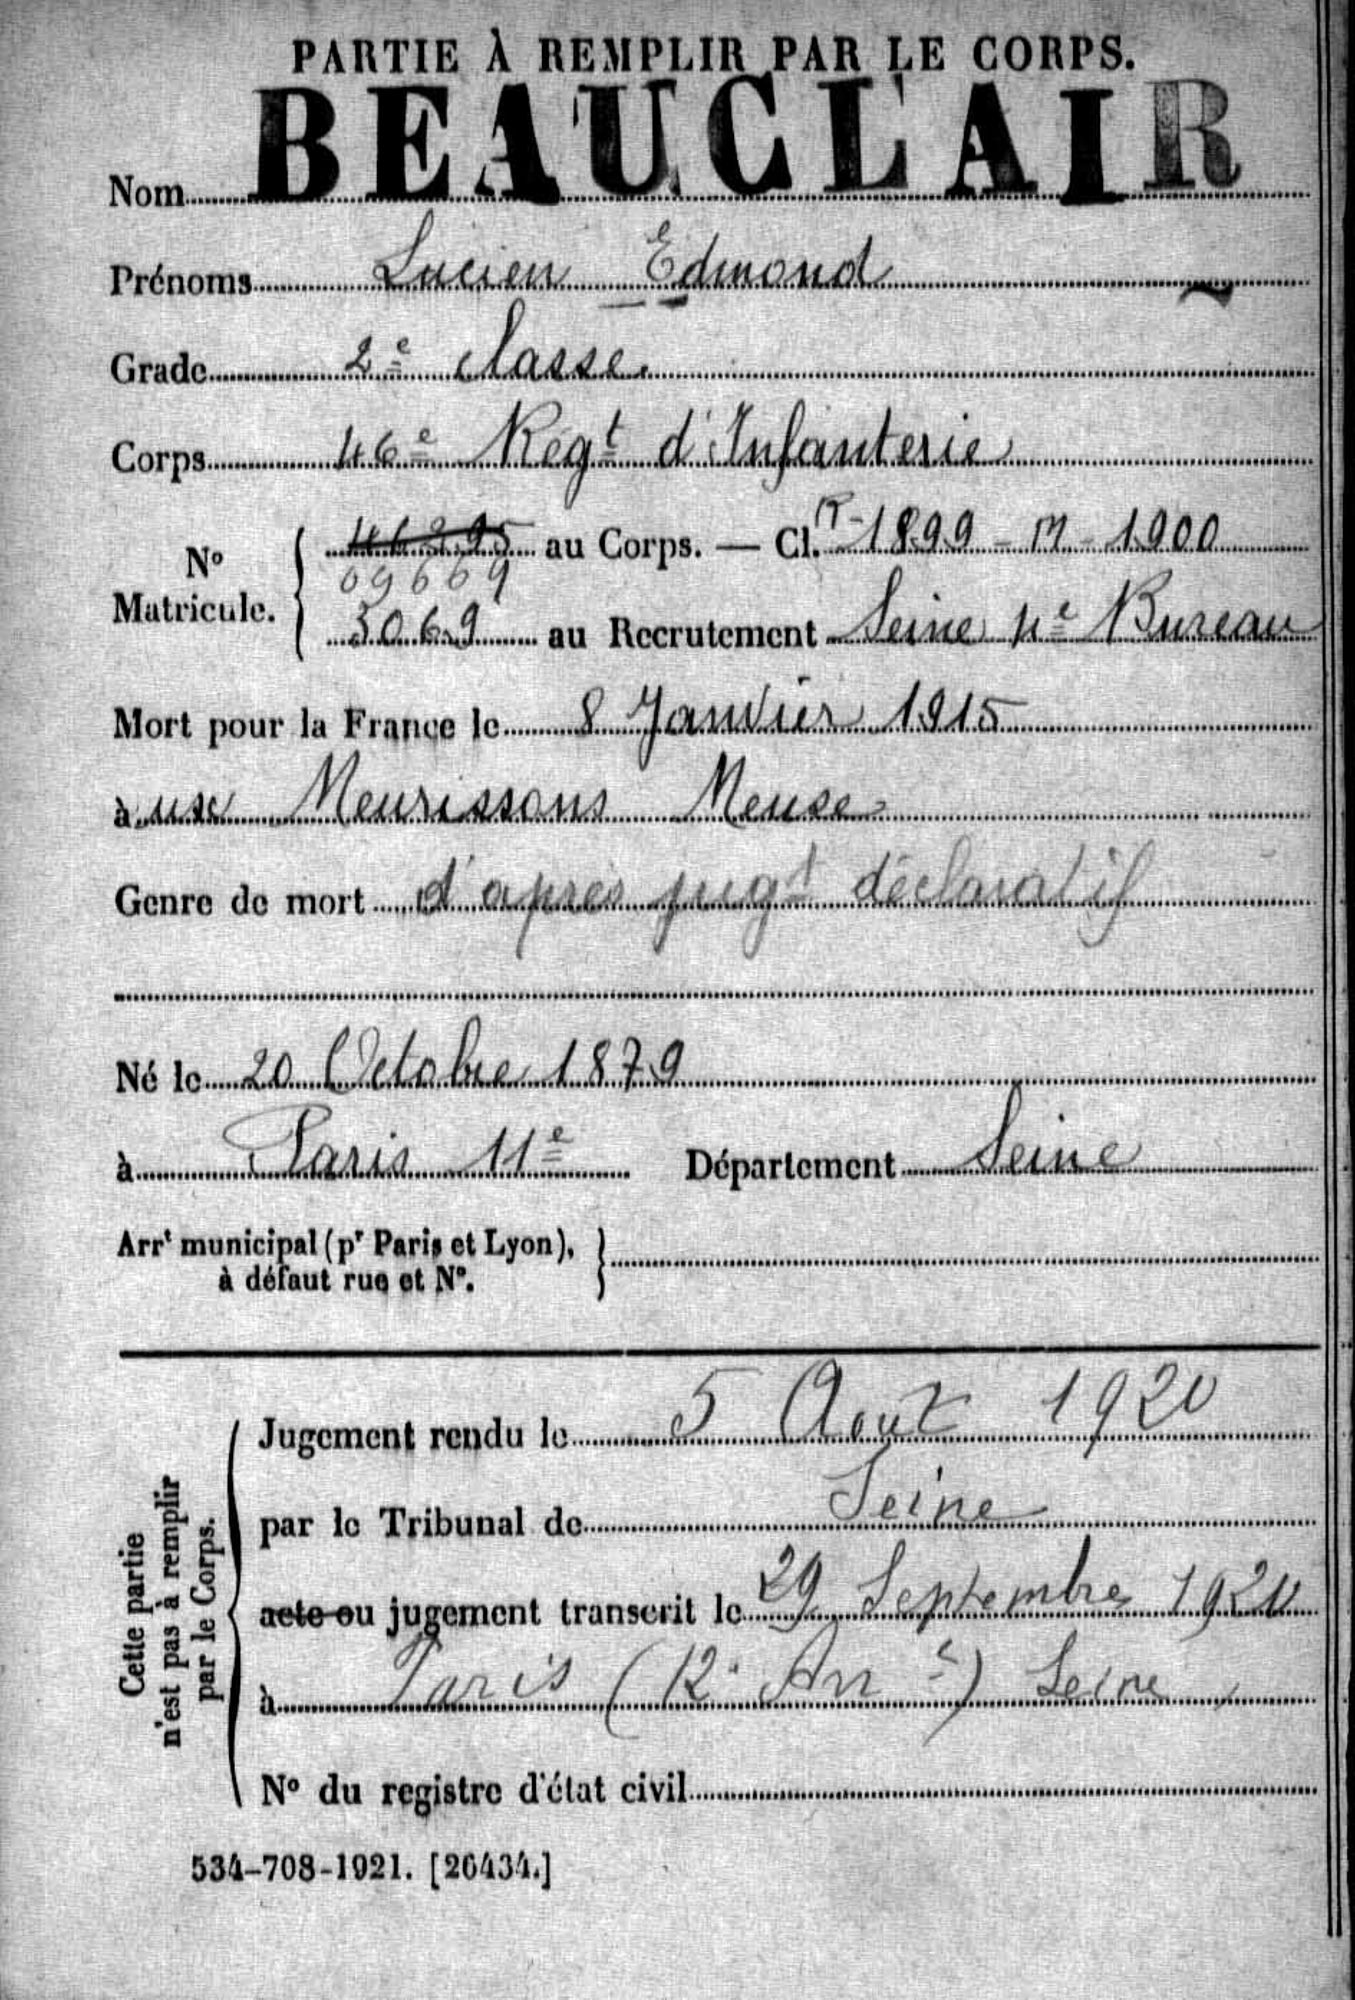 PARTIE À REMPLIR PAR LE CORPS.
Nom BEAUCLAIR
Prénoms Lucien Edmond
Grade 2e classe.
Corps 46e Régt d'Infanterie
N° Matricule.
46295 au Corps. — Cl. R-1899 - M - 1900
09669
3069 au Recrutement Seine 4e Bureau
Mort pour la France le 8 Janvier 1915
à aux Meurissons Meuse
Genre de mort d'après jugt déclaratif
Né le 20 Octobre 1879
à Paris 11e Département Seine
Arrt municipal (pr Paris et Lyon), à défaut rue et N°.
Cette partie n'est pas à remplir par le Corps.
Jugement rendu le 5 Aout 1920
par le Tribunal de Seine
acte ou jugement transcrit le 29 Septembre 1920
à Paris (12e Arrt) Seine
N° du registre d'état civil
534-708-1921. [26434.]